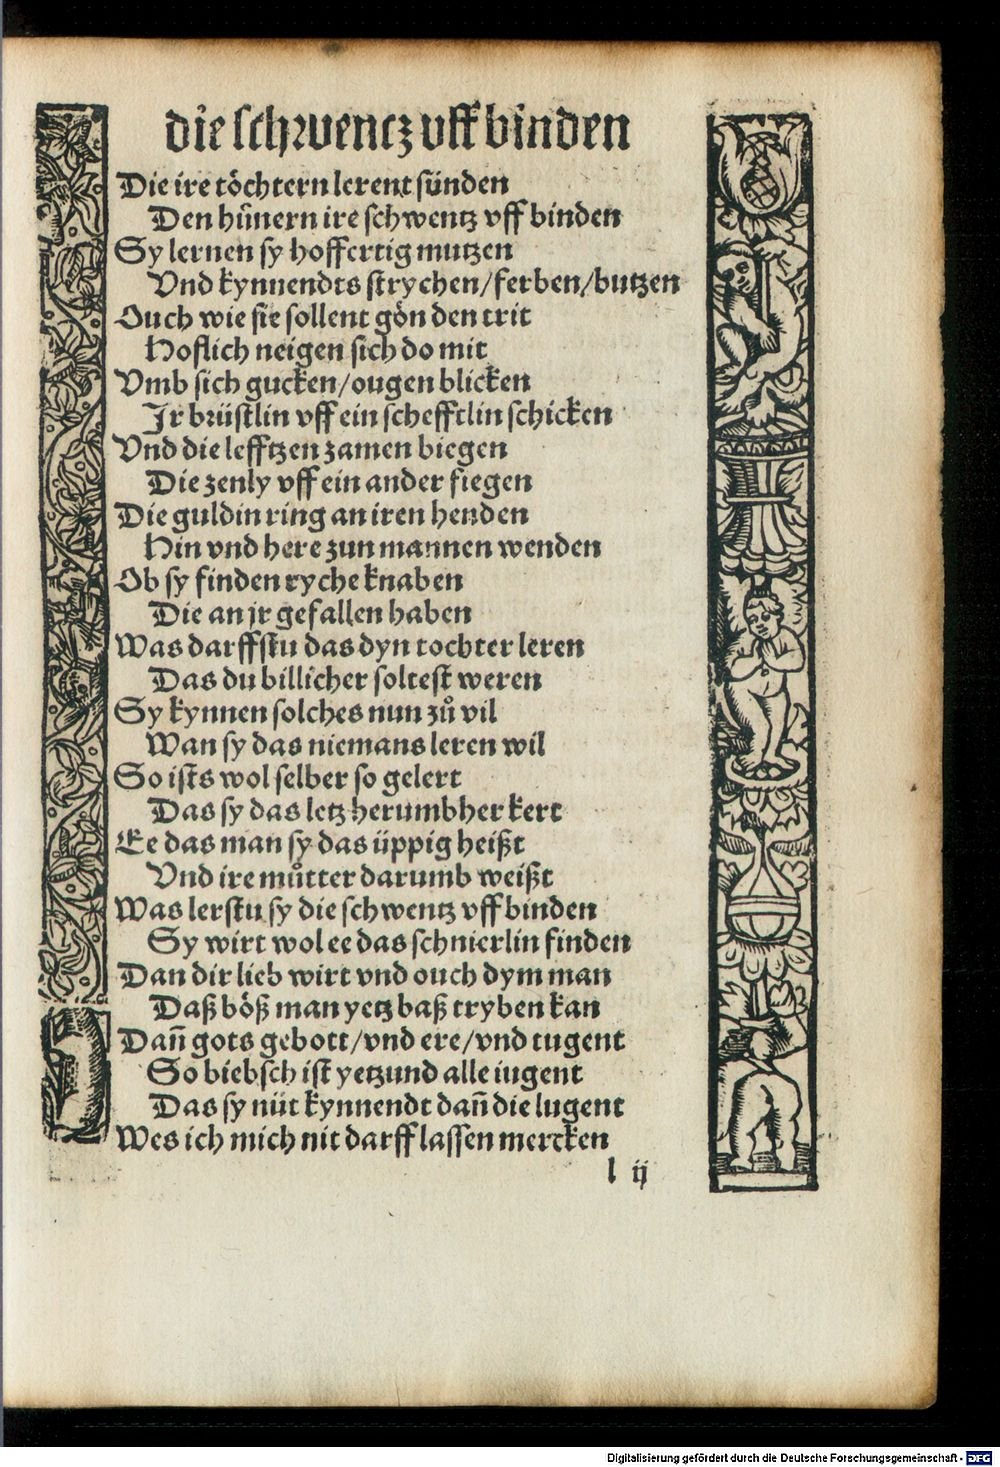 die schwentz vff binden
Die ire töchtern lerent sünden
Den hünern ire schwentz vff binden
Sy lernen sy hoffertig mutzen
Vnd kynnendts strychen/ferben/butzen
Ouch wie sie sollent gön den trit
Hoflich neigen sich do mit
Vmb sich gucken/ougen blicken
Jr brüstlin vff ein schefftlin schicken
Vnd die lefftzen zamen biegen
Die zenly vff ein ander fiegen
Die guldin ring an iren henden
Hin vnd here zun mannen wenden
Ob sy finden ryche knaben
Die an jr gefallen haben
Was darffstu das dyn tochter leren
Das du billicher soltest weren
Sy kynnen solches nun zů vil
Wan sy das niemans leren wil
So ists wol selber so gelert
Das sy das letz herumbher kert
Ee das man sy das üppig heißt
Vnd ire můtter darumb weißt
Was lerstu sy die schwentz vff binden
Sy wirt wol ee das schnierlin finden
Dan dir lieb wirt vnd ouch dym man
Daß böß man yetz baß tryben kan
Dan̄ gots gebott/vnd ere/vnd tugent
So biebsch ist yetzund alle iugent
Das sy nüt kynnendt dan̄ die lugent
Wes ich mich nit darff lassen mercken
l ij
Digitalisierung gefördert durch die Deutsche Forschungsgemeinschaft - DFG